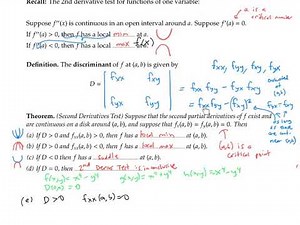 Recall: The 2nd derivative test for functions of one variable:
a is a critical number
Suppose f''(x) is continuous in an open interval around a. Suppose f'(a) = 0.
If f''(a) > 0, then f has a local min at a.
If f''(a) < 0, then f has a local max
fxx, fyy, fxy, fyx
Definition. The discriminant of f at (a, b) is given by
D = | fxx fxy |
| fyx fyy |
= fxx fyy - fxy fyx
= fxx fyy - (fxy)²
evaluated at (a,b)
fxy = fyx
as long as
Theorem. (Second Derivatives Test) Suppose that the second partial derivatives of f exist and
are continuous on a disk around (a, b), and suppose that fx(a, b) = 0, fy(a, b) = 0. Then
(a) If D > 0 and fxx(a, b) > 0, then f has a local min at (a, b).
(b) If D > 0 and fxx(a, b) < 0, then f has a local max at (a, b).
(c) If D < 0 then f has a saddle at (a, b).
(d) If D = 0, then 2nd Deriv Test is inconclusive
(a,b) is a critical point
(e) D > 0 fxx(a,b) = 0